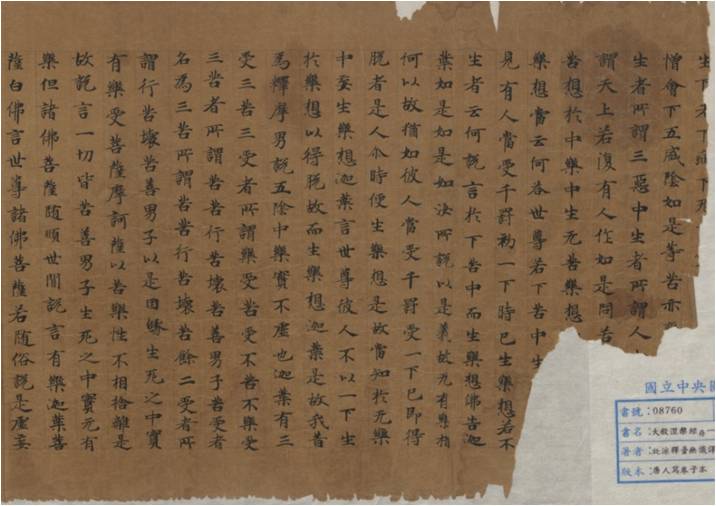 生下老下病下死
憎會下五盛陰如是等苦亦
生者所謂三惡中生者所謂人
謂天上若復有人作如是問若
苦想於中樂中生无苦樂想
樂想當云何答世尊若下苦中生
見有人當受千罰初一下時已生樂想若不
生者云何說言於下苦中而生樂想佛告迦
葉如是如是如汝所說以是義故无有樂想
何以故猶如彼人當受千罰受一下已即得
脫者是人尒時便生樂想是故當知於无樂
中妄生樂想迦葉言世尊彼人不以一下生
於樂想以得脫故而生樂想迦葉是故我昔
為釋摩男說五陰中樂實不虛也迦葉有三
受三苦三受者所謂樂受苦受不苦不樂受
三苦者所謂苦苦行苦壞苦善男子苦受者
名為三苦所謂苦苦行苦壞苦餘二受者所
謂行苦壞苦善男子以是因緣生死之中實
有樂受菩薩摩訶薩以苦樂性不相捨離是
故說言一切皆苦善男子生死之中實无有
樂但諸佛菩薩随順世間說言有樂迦葉菩
薩白佛言世尊諸佛菩薩若随俗說是虛妄
國立中央圖
書號:08760
書名:大般涅槃經存一
著者:北涼釋曇無讖譯
版本:唐人寫卷子本